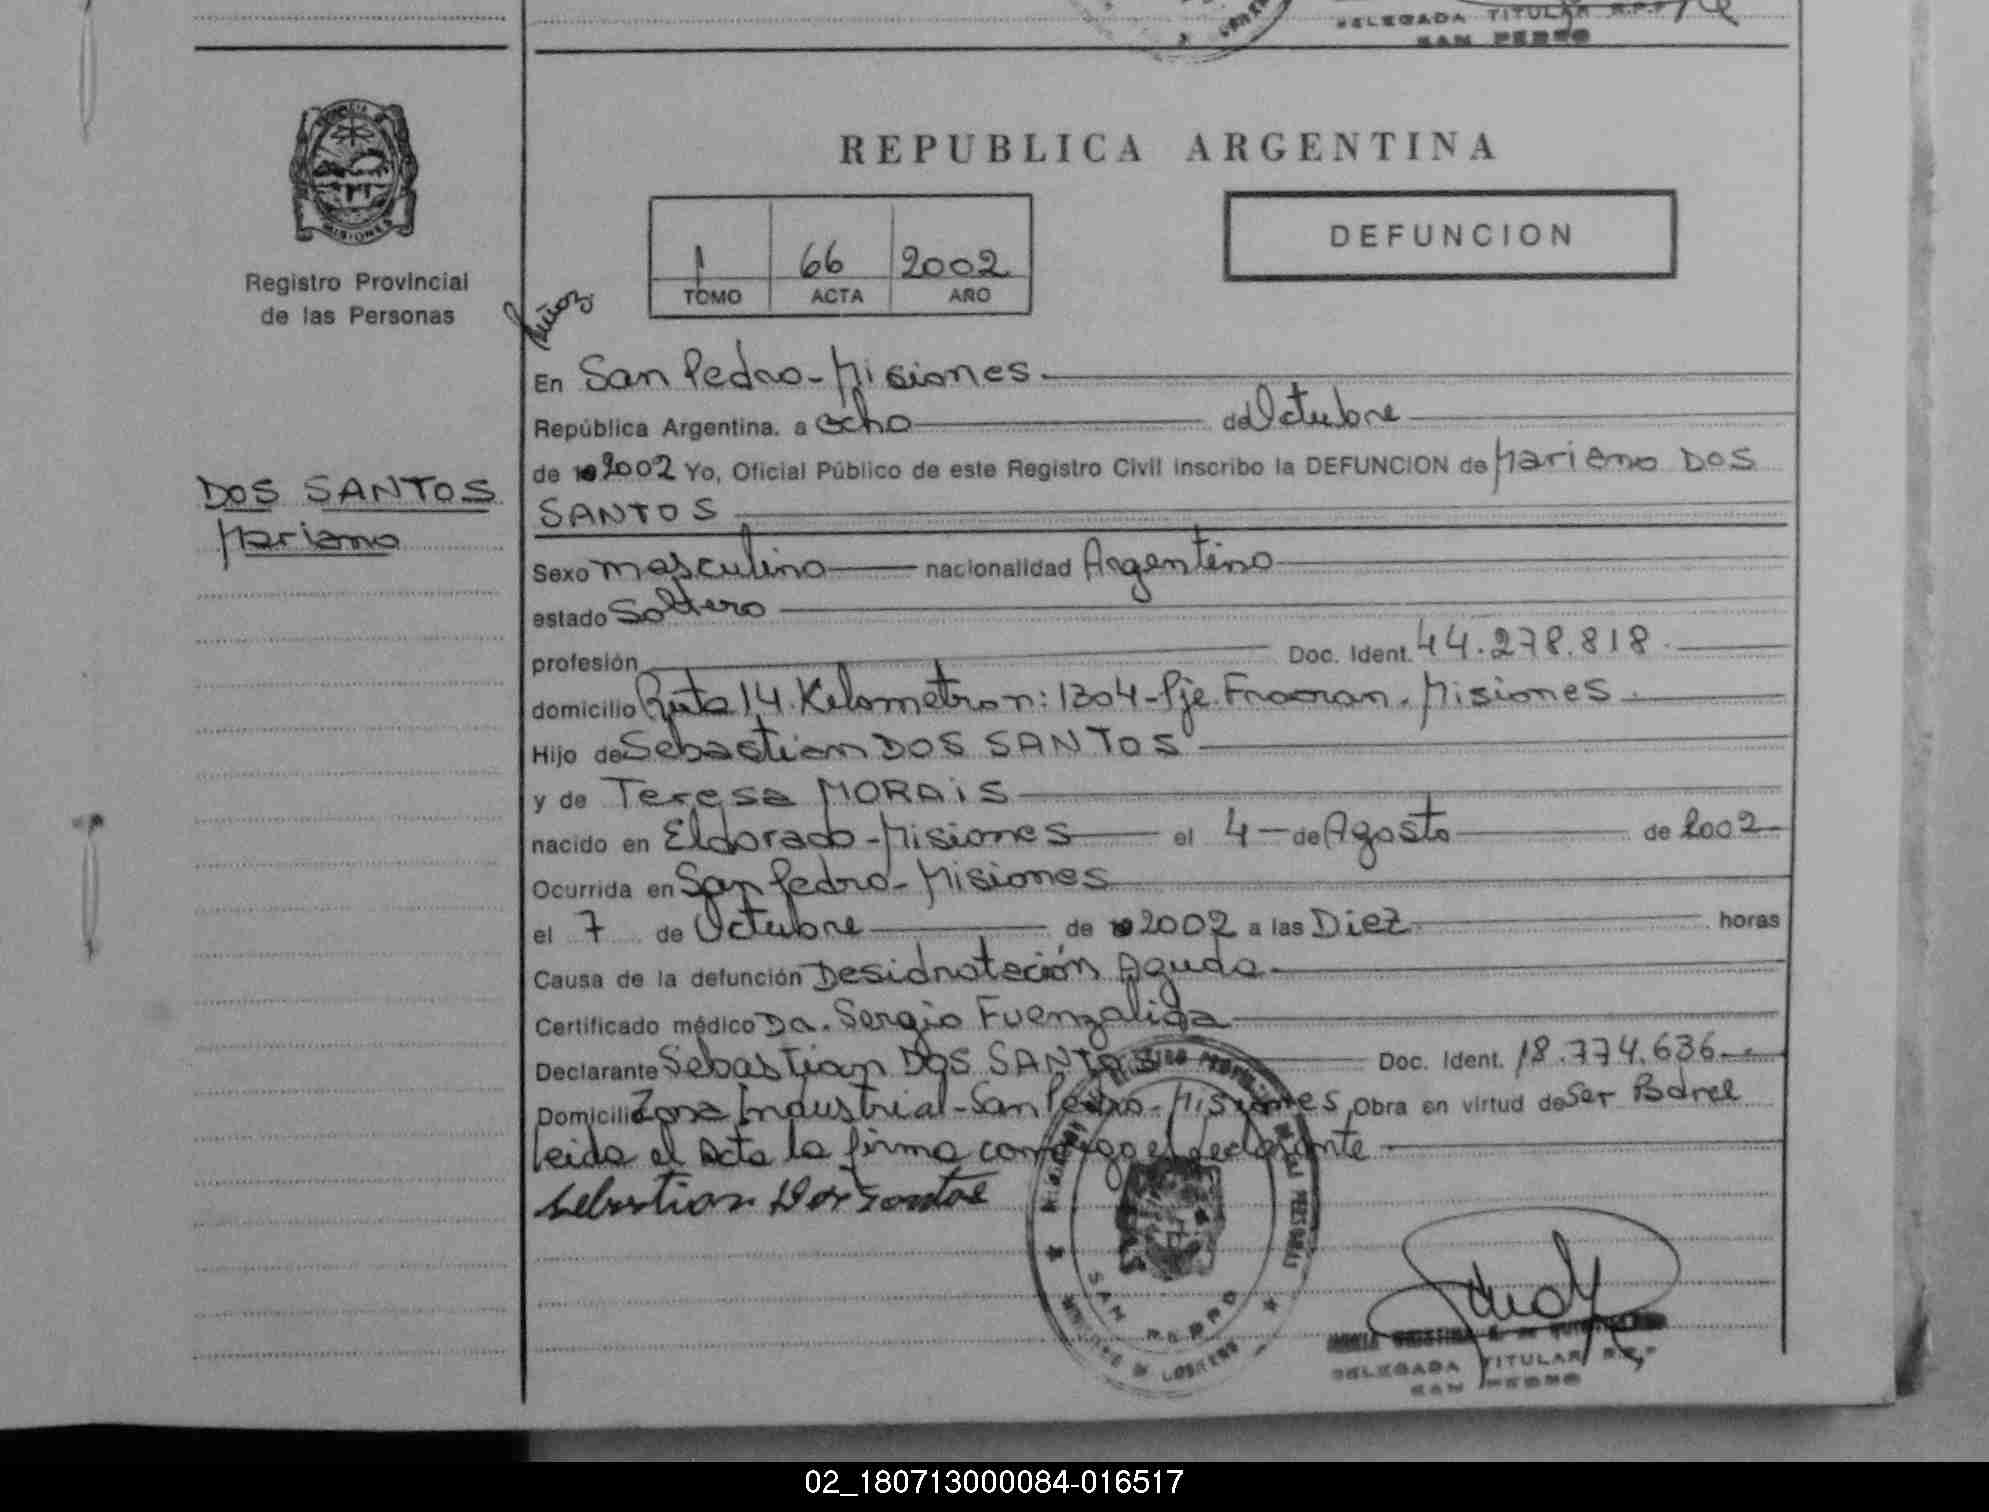 DELEGADA TITULAR R.P.P
SAN PEDRO
PROVINCIA DE
MISIONES
Registro Provincial
de las Personas
REPUBLICA ARGENTINA
1 66 2002
TOMO ACTA AÑO
DEFUNCION
En San Pedro - Misiones
República Argentina. a ocho de Octubre
de 192002 Yo, Oficial Público de este Registro Civil inscribo la DEFUNCION de Mariano DOS
SANTOS
DOS SANTOS
Mariano
Sexo masculino nacionalidad Argentino
estado Soltero
profesión Doc. Ident. 44.278.818.
domicilio Ruta 14. Kilometro n: 1304 - Pje. Fracran. Misiones.
Hijo de Sebastian DOS SANTOS
y de Teresa MORAIS
nacido en Eldorado - Misiones el 4 de Agosto de 2002
Ocurrida en San Pedro - Misiones
el 7 de Octubre de 192002 a las Diez horas
Causa de la defunción Desidratación Aguda
Certificado médico Da. Sergio Fuenzalida
Declarante Sebastian DOS SANTOS Doc. Ident. 18.774.636
Domicilio Zona Industrial - San Pedro - Misiones Obra en virtud de Ser Padre
leida el Acta la firma conmigo el declarante
Sebastian Dos Santos
SAN PEDRO
DELEGADA TITULAR R.P.P
SAN PEDRO
02_180713000084-016517